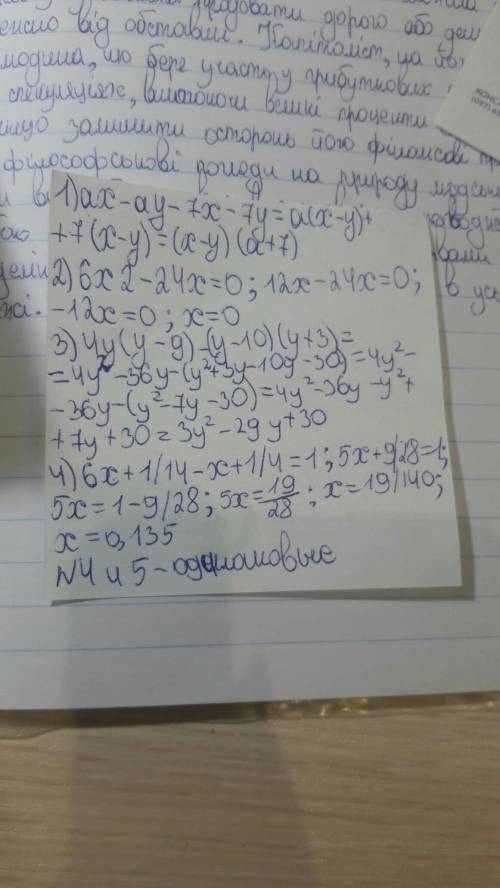 продовати дорого або
від обставин. Капіталіст, ца
бере участь у прибуткових
спекуляціях, вимагаючи великі проценти
залишити осторонь його фінансові
філософські погляди на природу
1) ax - ay - 7x - 7y = a(x-y)+
+7(x-y) = (x-y)(a+7)
2) 6x2 - 24x = 0; 12x - 24x = 0;
-12x = 0; x = 0
3) 4y(y-9) - (y-10)(y+3) =
= 4y² - 36y - (y² + 3y - 10y - 30) = 4y² -
- 36y - (y² - 7y - 30) = 4y² - 36y - y² +
+ 7y + 30 = 3y² - 29y + 30
4) 6x + 1/14 - x + 1/4 = 1; 5x + 9/28 = 1;
5x = 1 - 9/28; 5x = 19/28; x = 19/140;
x = 0,135
N4 и 5 - одинаковые